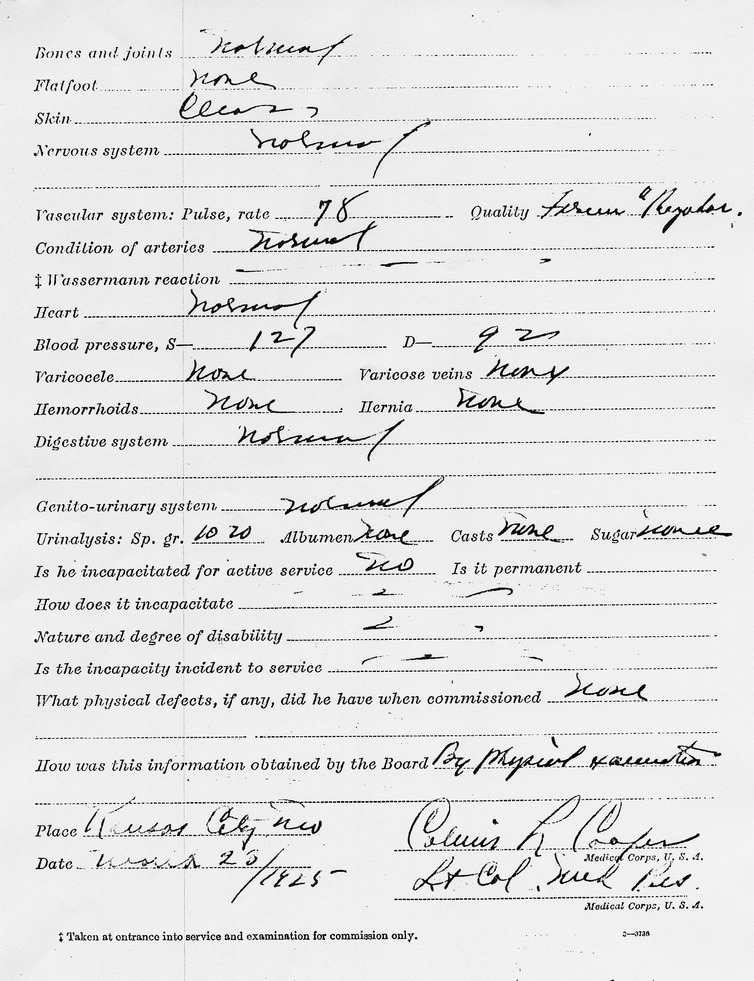 Bones and joints normal
Flatfoot none
Skin Clear
Nervous system normal
Vascular system: Pulse, rate 78 Quality Regular.
Condition of arteries normal
‡ Wassermann reaction
Heart normal
Blood pressure, S— 127 D— 92
Varicocele none Varicose veins none
Hemorrhoids none Hernia none
Digestive system normal
Genito-urinary system normal
Urinalysis: Sp. gr. 1020 Albumen none Casts none Sugar none
Is he incapacitated for active service no Is it permanent
How does it incapacitate
Nature and degree of disability
Is the incapacity incident to service
What physical defects, if any, did he have when commissioned none
How was this information obtained by the Board By physical examination
Place Kansas City Mo
R Cooper
Medical Corps, U. S. A.
Date March 23/1925
Lt Col Med Res.
Medical Corps, U. S. A.
‡ Taken at entrance into service and examination for commission only.